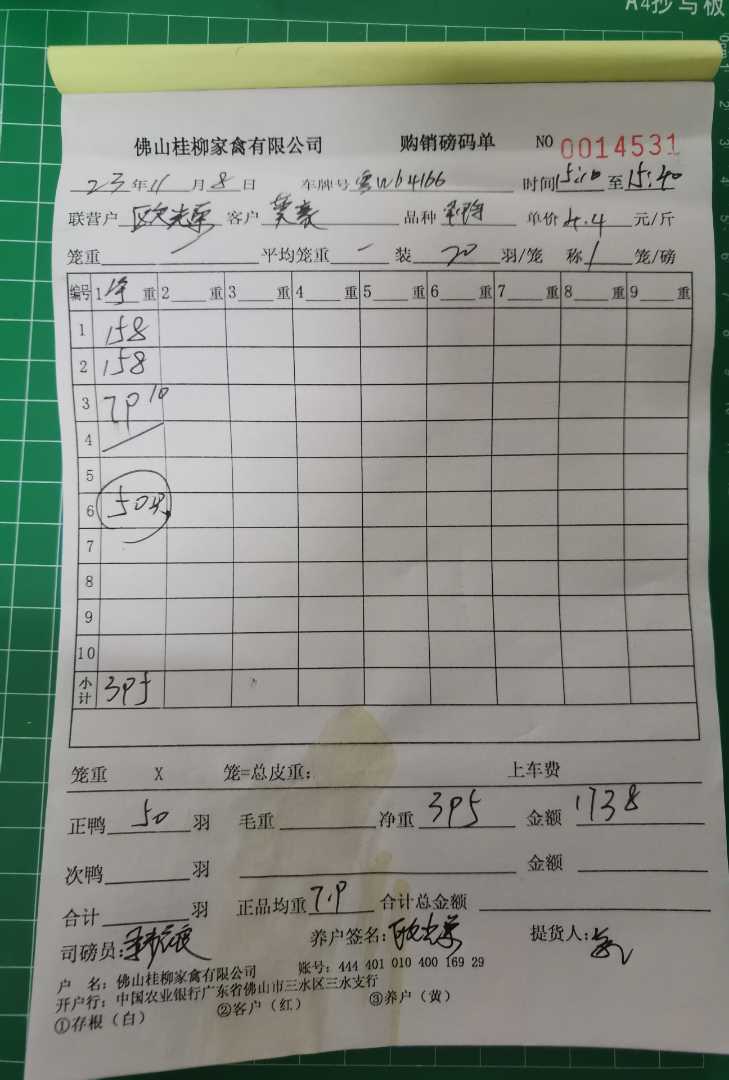 A4抄写板
佛山桂柳家禽有限公司 购销磅码单 NO 0014531
23年11月8日 车牌号粤Wb4166 时间15:10至15:40
联营户 欧光荣 客户 品种 单价4.4元/斤
笼重 一 平均笼重 一 装 20 羽/笼 称 1 笼/磅
编号 1净重 2 重 3 重 4 重 5 重 6 重 7 重 8 重 9 重
1 158
2 158
3 79 10
4
5
6 50只
7
8
9
10
小计 395
笼重 X 笼=总皮重: 上车费
正鸭 50 羽 毛重 净重 395 金额 1738
次鸭 羽 金额
合计 羽 正品均重 7.9 合计总金额
司磅员: 养户签名: 欧光荣 提货人:
户 名: 佛山桂柳家禽有限公司 账号: 444 401 010 400 169 29
开户行: 中国农业银行广东省佛山市三水区三水支行
①存根(白) ②客户(红) ③养户(黄)